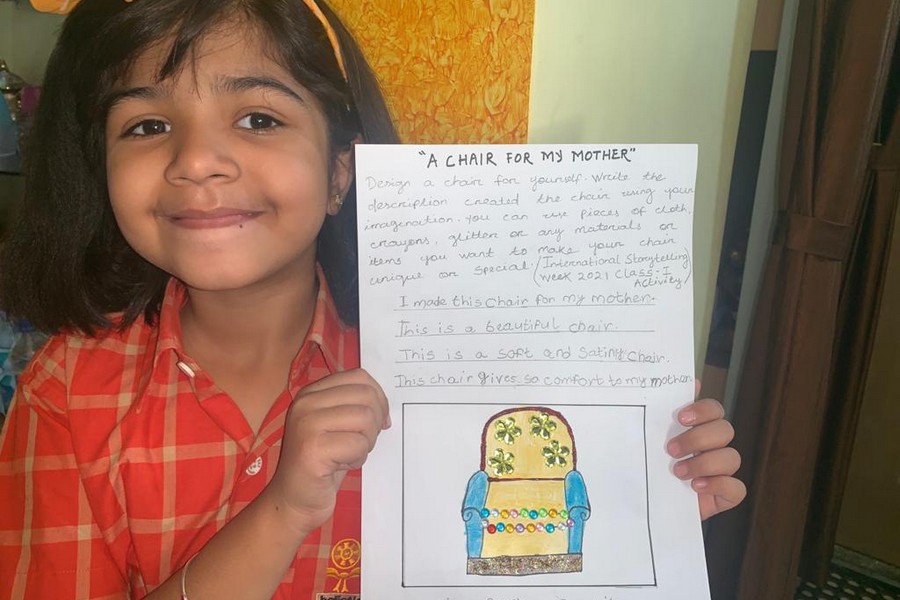 "A CHAIR FOR MY MOTHER"
Design a chair for yourself. Write the
description created the chair using your
imagination. You can use pieces of cloth,
crayons, glitter or any materials or
items you want to make your chair
unique or special. (International Storytelling
Week 2021 Class-I
Activity)
I made this chair for my mother.
This is a beautiful chair.
This is a soft and satiny chair.
This chair gives so comfort to my mother